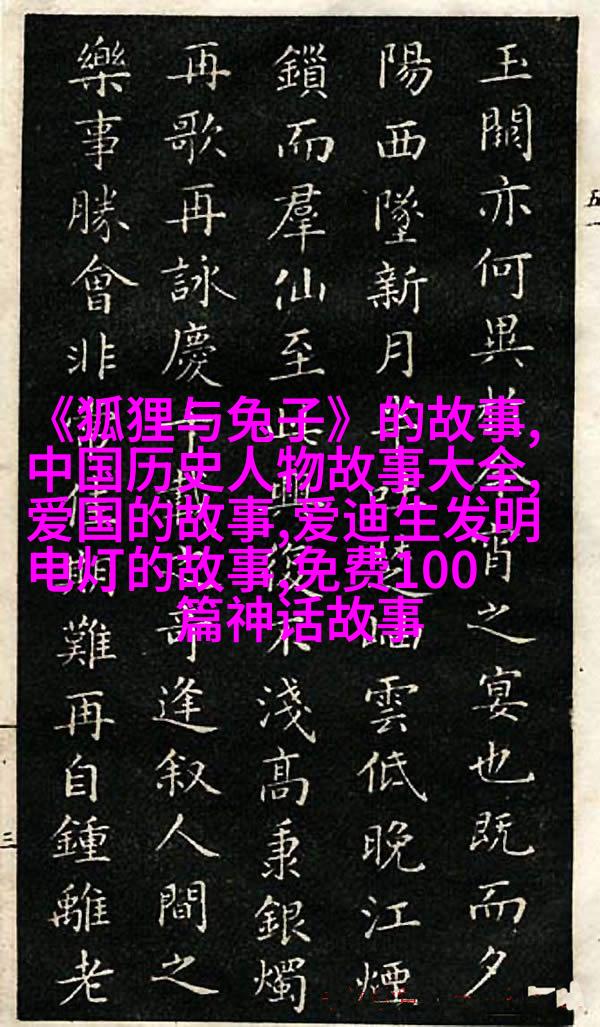 玉闕亦何異於今宵之宴也既而夕
陽西墜新月半吐楚岫雲低晚江煙
鎖而羣仙至此興復不淺高秉銀燭
再歌再詠慶千載之奇逢叙人間之
樂事勝會非偶佳期難再自鍾離老
《狐狸与兔子》的故事,
中国历史人物故事大全,
爱国的故事,爱迪生发明
电灯的故事,免费100
篇神话故事
五一
三